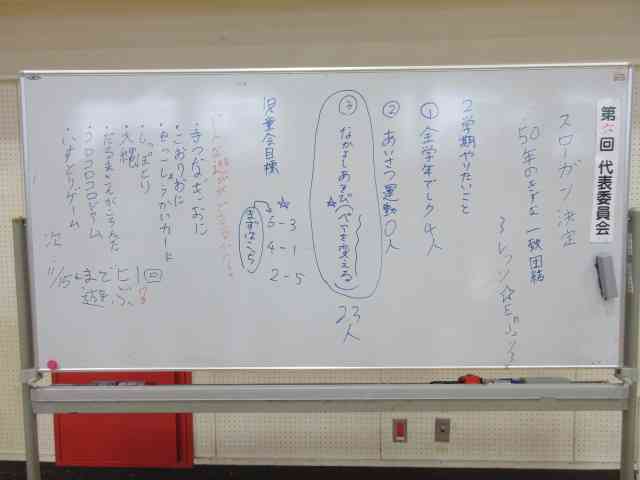 第六回 代表委員会
スローガン決定
50年のきずな 一致団結
2学期やりたいこと
① 全学年でレク 4人
② あいさつ運動 0人
③ なかよしあそび(ペアを変える) 23人
児童会目標
☆
5-3
4-1
2-5
まずはこちら
・手つなぎおに
・こおりおに
・じこしょうかいカード
・しっぽとり
・大縄
・だるまさんがころんだ
・コロコロコロシアム
・いすとりゲーム
次
11/15までに1回
遊ぶ